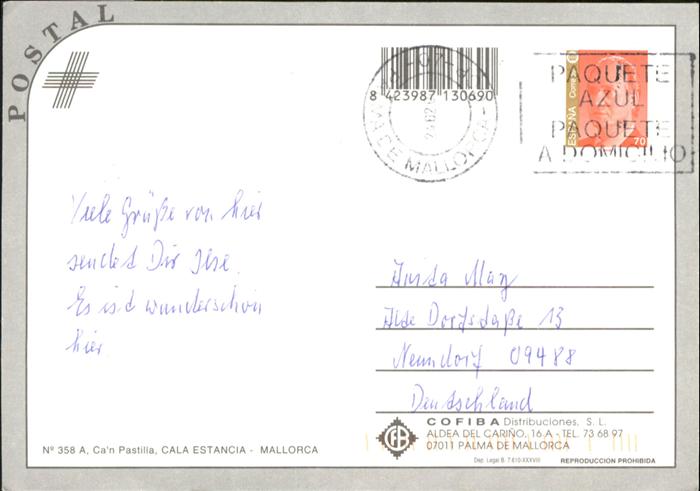 POSTAL
8 423987 130690
07
MA DE MALLORCA
PAQUETE
AZUL
PAQUETE
A DOMICILIO
ESPAÑA Correos
70
Viele Grüße von hier
sendet Dir Ilse.
Es ist wunderschön
hier
Anita May
Alte Dorfstraße 13
Neundorf 09488
Deutschland
COFIBA Distribuciones, S. L.
ALDEA DEL CARIÑO, 16 A - TEL. 73 68 97
07011 PALMA DE MALLORCA
Dep. Legal B. 7.610-XXXVIII
REPRODUCCION PROHIBIDA
Nº 358 A, Ca'n Pastilla, CALA ESTANCIA - MALLORCA